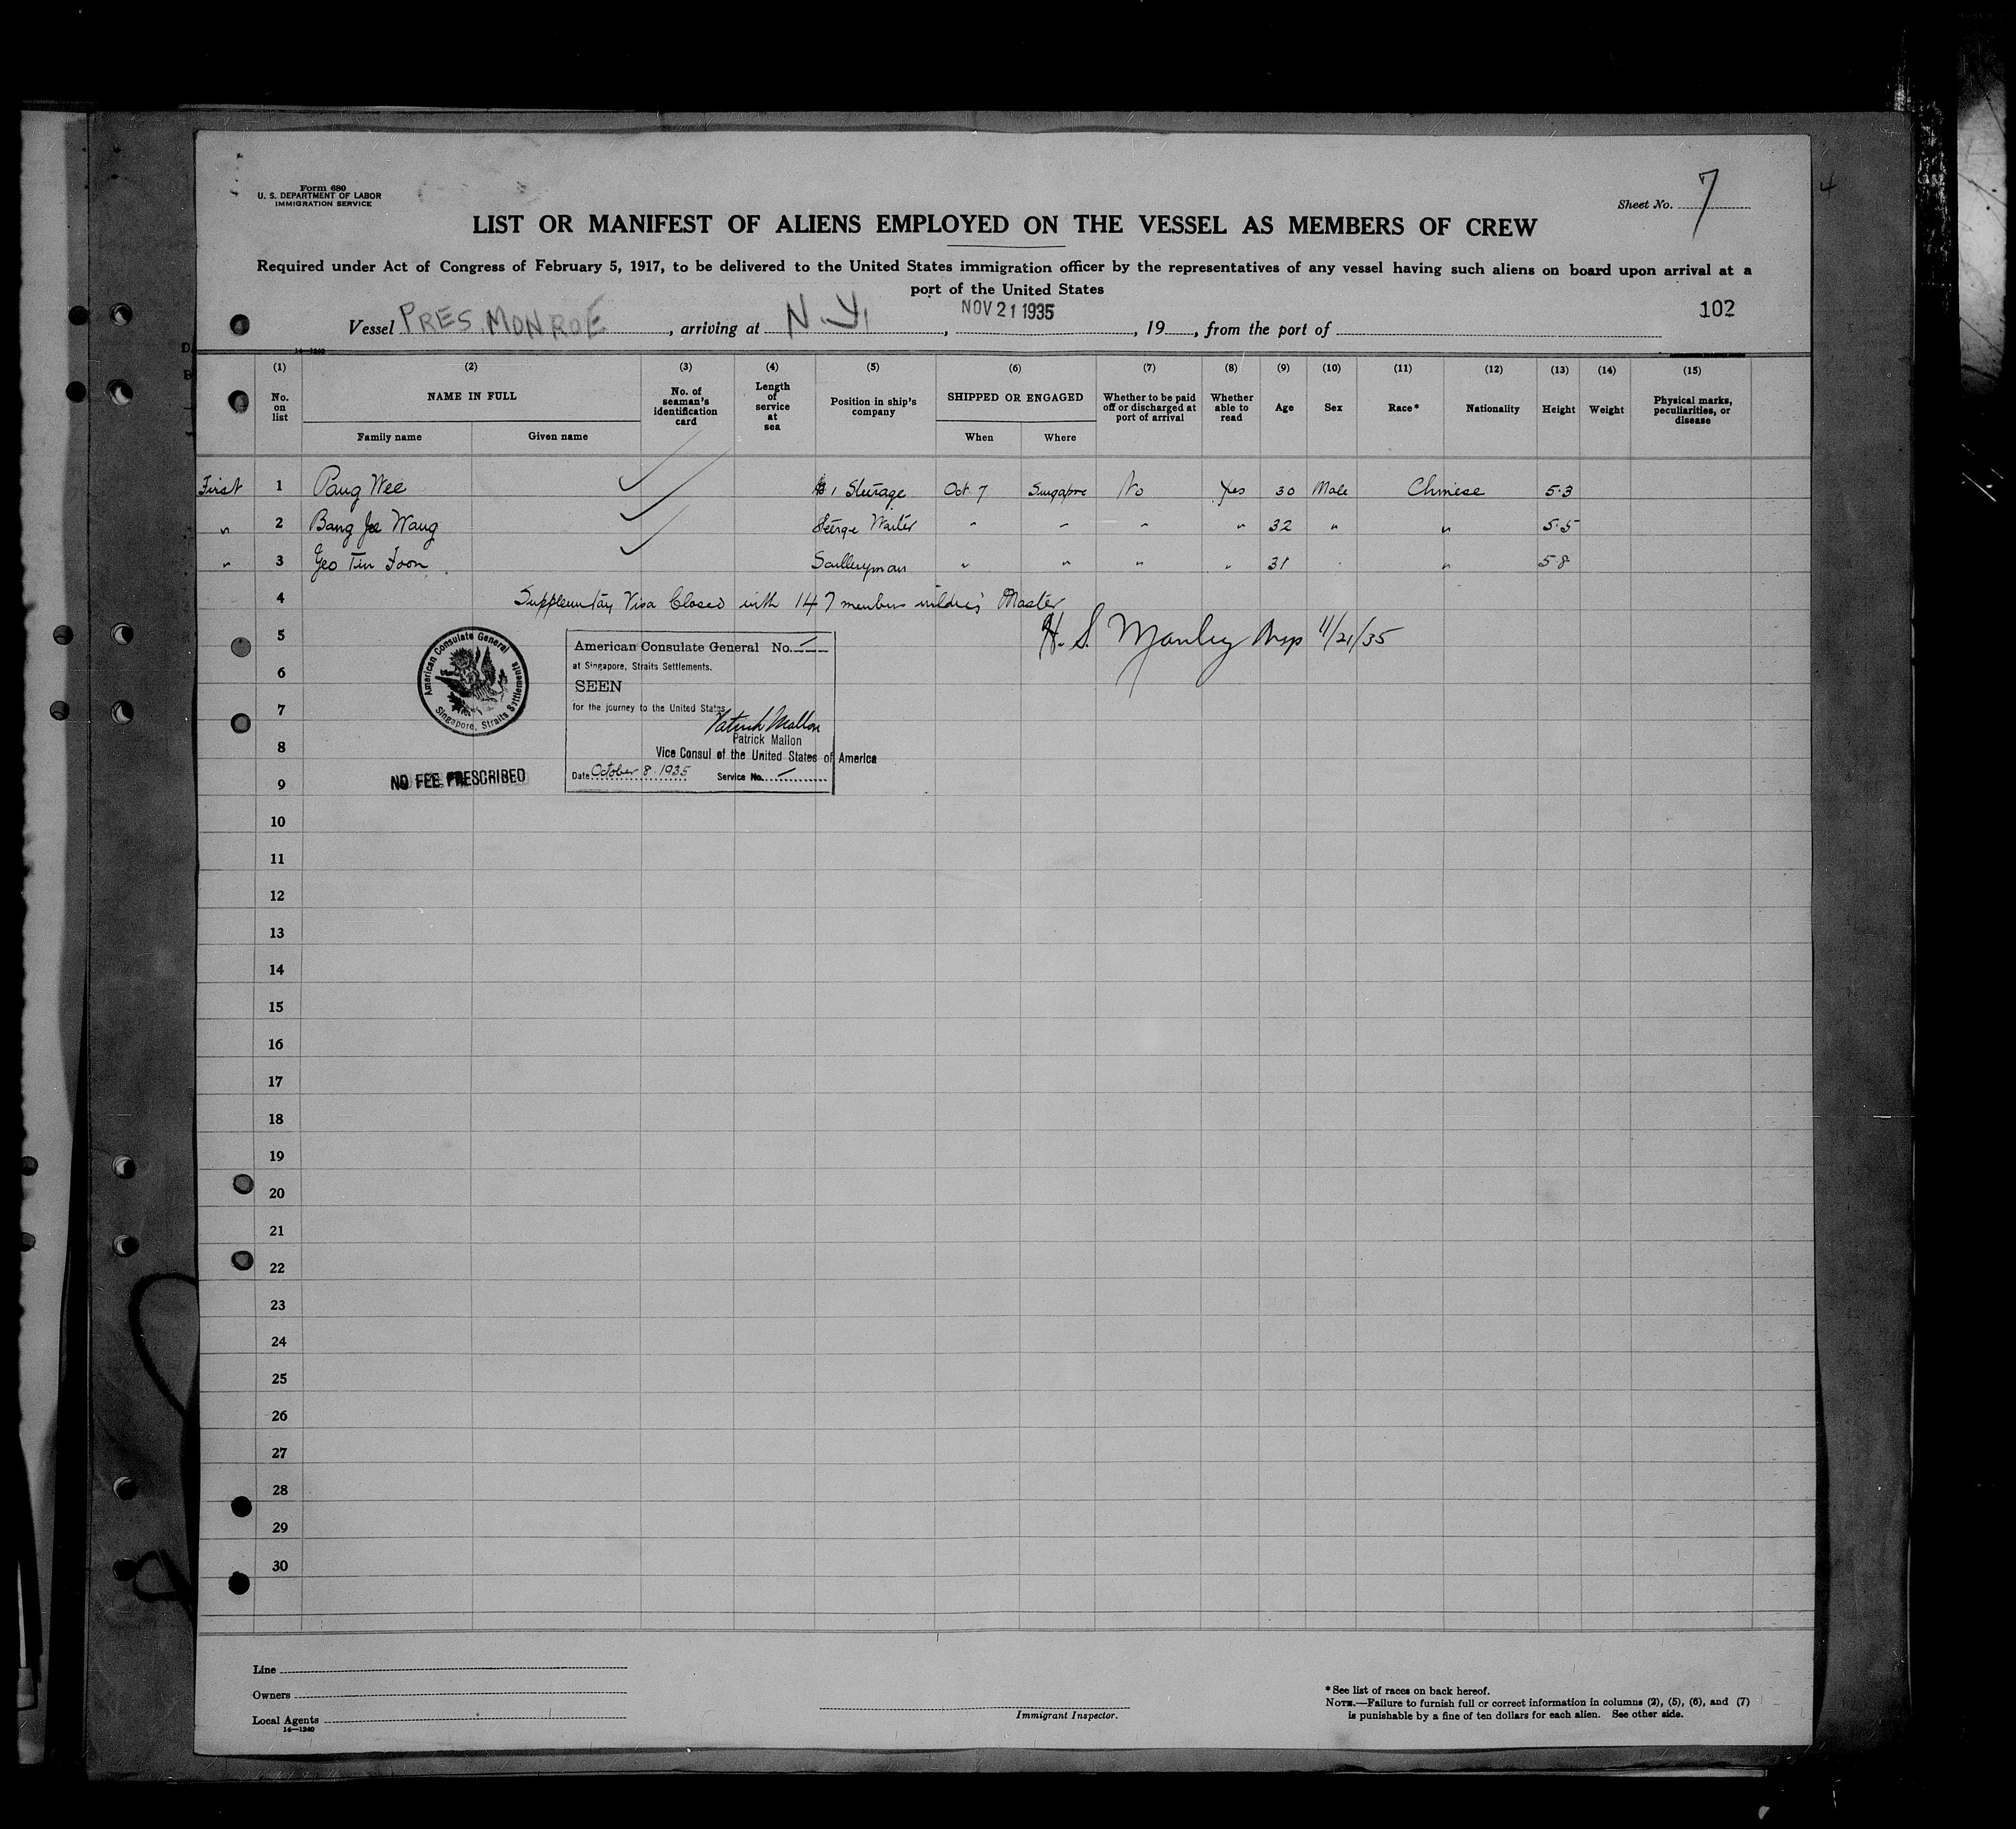 Form 680
U. S. DEPARTMENT OF LABOR
IMMIGRATION SERVICE
Sheet No. 7
LIST OR MANIFEST OF ALIENS EMPLOYED ON THE VESSEL AS MEMBERS OF CREW
Required under Act of Congress of February 5, 1917, to be delivered to the United States immigration officer by the representatives of any vessel having such aliens on board upon arrival at a
port of the United States
102
Vessel PRES. MONROE, arriving at N.Y., NOV 21 1935, 19, from the port of
14—1240
(1) (2) (3) (4) (5) (6) (7) (8) (9) (10) (11) (12) (13) (14) (15)
No. on list NAME IN FULL Family name Given name No. of seaman's identification card Length of service at sea Position in ship's company SHIPPED OR ENGAGED When Where Whether to be paid off or discharged at port of arrival Whether able to read Age Sex Race* Nationality Height Weight Physical marks, peculiarities, or disease
First 1 Pang Wee ✓ 1 Steerage Oct 7 Singapore No Yes 30 Male Chinese 5·3
" 2 Bang Wang ✓ Waiter " " " " 32 " " 5·5
" 3 Geo Tin Foon ✓ " " " " 31 " 5·8
4 Supplementary Visa Closed with 147 members Master
5 H. S. Manley Insp 11/21/35
6
7
8
9
American Consulate General
Singapore, Straits Settlements
American Consulate General No. —
at Singapore, Straits Settlements.
SEEN
for the journey to the United States
Patrick Mallon
Patrick Mallon
Vice Consul of the United States of America
Date October 8 1935 Service No. —
NO FEE PRESCRIBED
10
11
12
13
14
15
16
17
18
19
20
21
22
23
24
25
26
27
28
29
30
Line
Owners
Local Agents
14—1240
Immigrant Inspector.
* See list of races on back hereof.
NOTE.—Failure to furnish full or correct information in columns (2), (5), (6), and (7)
is punishable by a fine of ten dollars for each alien. See other side.